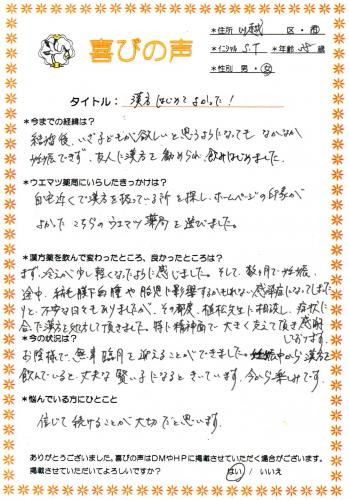 喜びの声
*住所 川越 区・市
*イニシャル S.T *年齢 28 歳
*性別 男・女
タイトル： 漢方はじめてよかった！
*今までの経緯は？
結婚後、いざ子どもが欲しいと思うようになってもなかなか
妊娠できず、友人に漢方を勧められ飲みはじめました。
*ウエマツ薬局にいらしたきっかけは？
自宅近くで漢方を扱っている所を探し、ホームページの印象が
よかったこちらのウエマツ薬局を選びました。
*漢方薬を飲んで変わったところ、良かったところは？
まず、冷えが少し軽くなったように感じました。そして、数ヶ月で妊娠。
途中、絨毛膜下血腫や胎児に影響するかもしれない感染症になってしまった
りと、不安な日々もありましたが、その都度、植松先生に相談し、症状に
合った漢方を処方して頂きました。特に精神面で大きく支えて頂き感謝
しております。
*今の状況は？
お陰様で、無事臨月を迎えることができました。妊娠中から漢方を
飲んでいると、丈夫な賢い子になるときいています。今から楽しみです。
*悩んでいる方にひとこと
信じて続けることが大切だと思います。
ありがとうございました。喜びの声はDMやHPに掲載させていただく場合がございます。
掲載させていただいてよろしいですか？ はい / いいえ